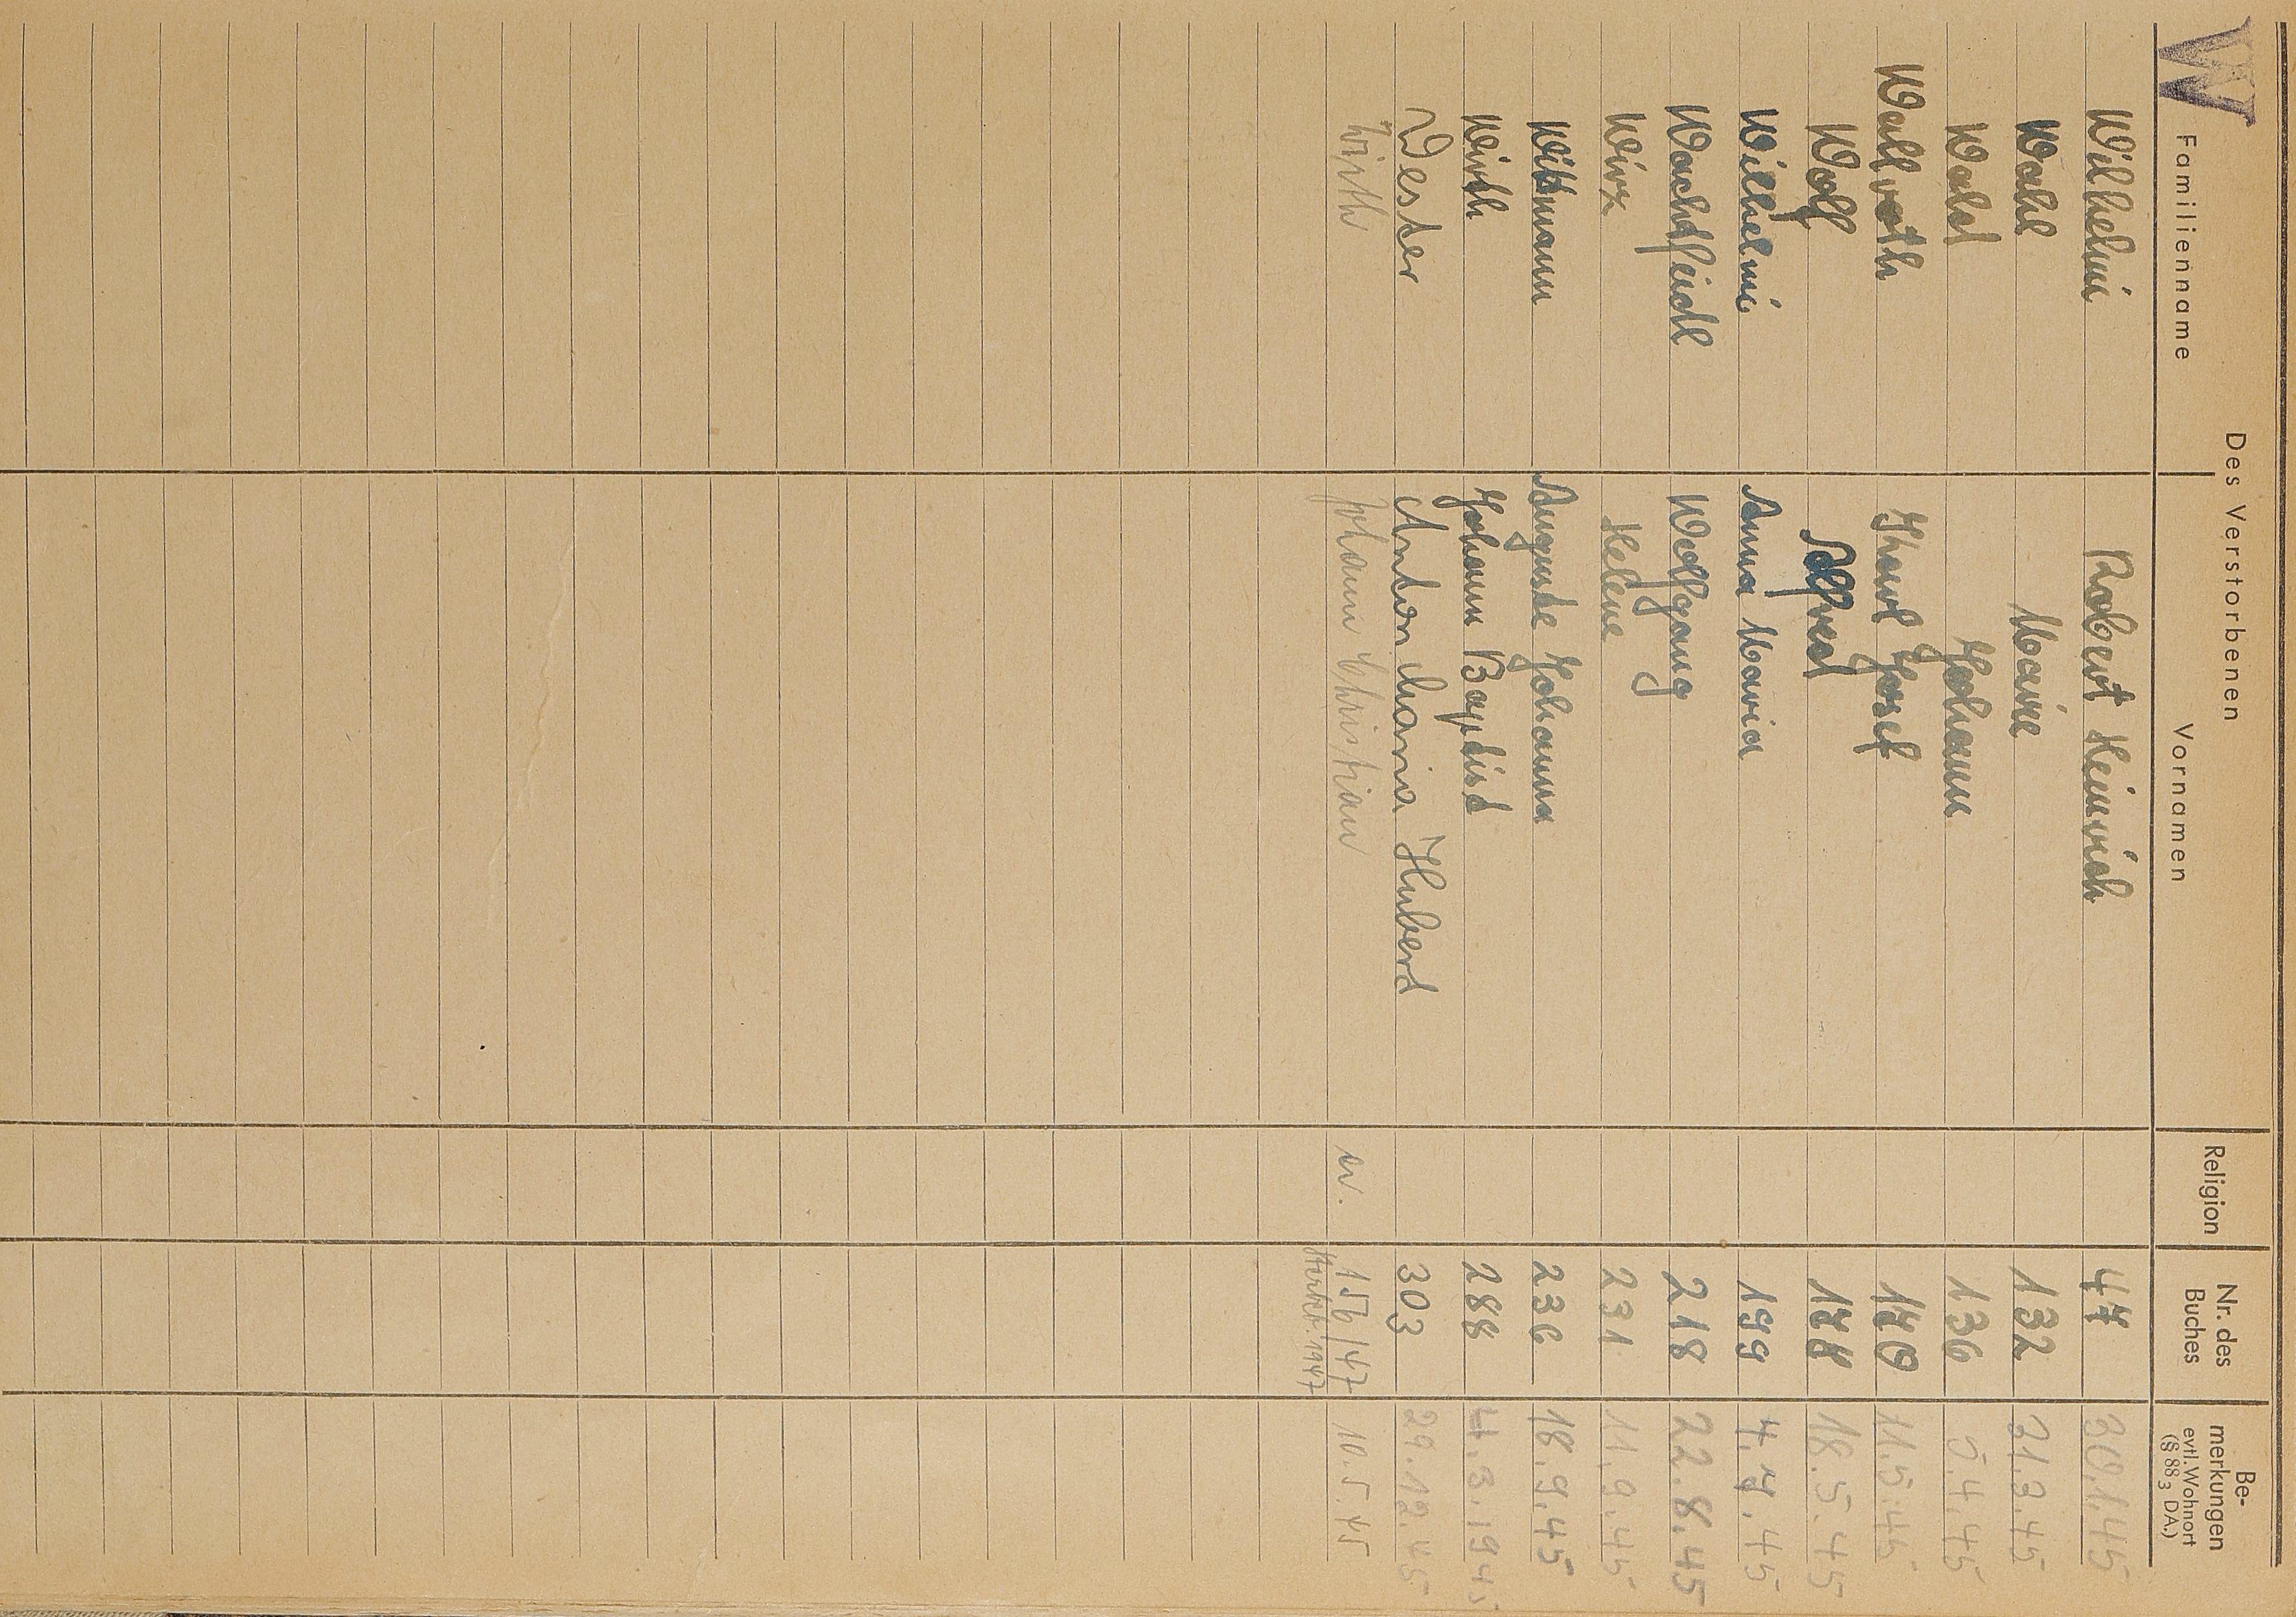 W
Des Verstorbenen
Familienname Vornamen Religion Nr. des Buches Bemerkungen evtl. Wohnort (§ 88 3 DA.)
Wilhelmi Robert Heinrich 47 30.1.45
Wahl Marie 132 31.3.45
Wald Johann 136 5.4.45
Wallroth Josef 170 11.5.45
Wolf Alfred 178 18.5.45
Wilhelmi Anna Maria 199 4.7.45
Wolfgang 218 22.8.45
Wirx Helene 231 11.9.45
Wittmann Auguste Johanna 236 18.9.45
Wirth Johann Baptist 288 4.3.1945
Wester Anton Maria Hubert 303 29.12.45
Wirth Johann Christian ev. 156/47 10.5.45
Sterbeb. 1947